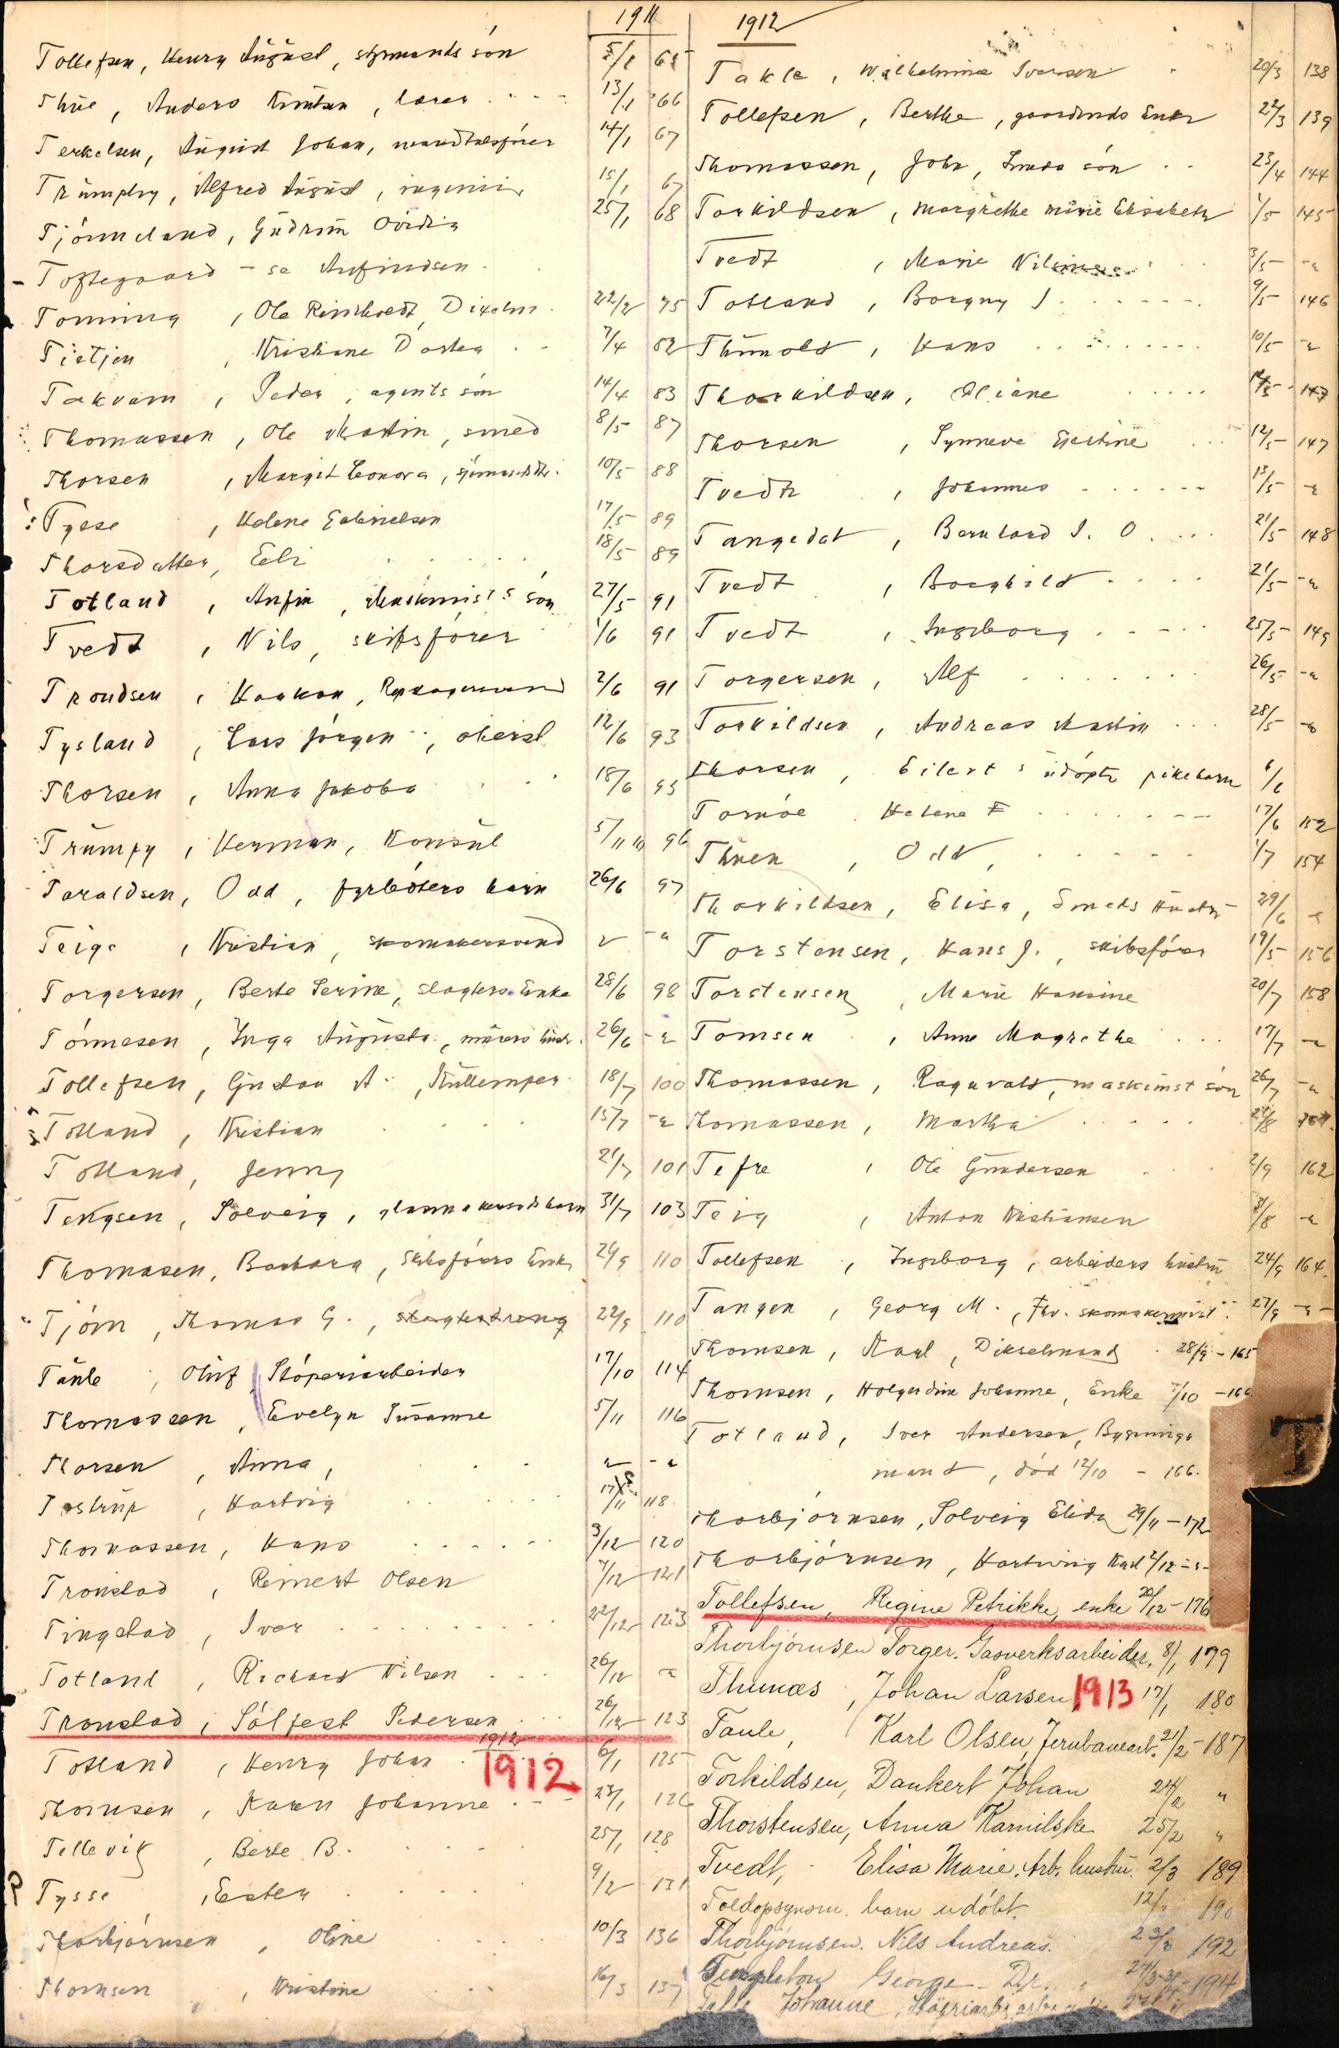 1911
Tollefsen, Henry August, styrmands són 5/1 65
Thue, Anders Knutsen, lærer 13/1 66
Terkelsen, August Johan, mandtalsfører 14/1 67
Trümphy, Alfred August, ingeniór 15/1 67
Tjómeland, Gudrun Ovidia 25/1 68
Toftegaard - se Anfindsen
Tonning, Ole Reinhoedt, Dixelm. 22/2 75
Tietjen, Kristiane Dortea 7/4 82
Takvam, Peder, agents són 14/4 83
Thomassen, Ole Martin, smed 8/5 87
Thorsen, Margit Leonora 10/5 88
Tysse, Helene Gabrielsen 17/5 89
Thorsdatter, Eli 18/5 89
Totland, Anfin, Maskinists són 27/5 91
Tvedt, Nils, skifsfórer 1/6 91
Trondsen, Haakon 2/6 91
Tysland, Lars Jórgen, oberst 12/6 93
Thorsen, Anna Jakoba 18/6 95
Trümpy, Herman, Konsul 5/11 10 96
Taraldsen, Odd, fyrbóters barn 26/6 97
Teige, Kristian, skomakersvend " - "
Torgersen, Berte Serine, slagters Enke 28/6 98
Tónnesen, Inga Augusta, murers hustr. 26/6 - "
Tollefsen, Gustav A., Kullemper 18/7 100
Totland, Kristian 15/7 - "
Totland, Jenny 21/7 101
Tengsen, Solveig 31/7 103
Thomasen, Barbara, Skibsfórers Enke 29/9 110
Tjórn, Thomas G., slagterdreng 22/9 110
Taule, Oluf, Stóperiarbeider 17/10 114
Thomassen, Evelyn Susanne 5/11 116
Thorsen, Anna, " - "
Tostrup, Hartvig 17/11 118
Thomassen, Hans 3/12 120
Tronstad, Reinert Olsen 7/12 121
Tingstad, Iver 22/12 123
Totland, Richard Nilsen 26/12 "
Tronstad, Sólfest Pedersen 26/12 123
1912
Totland, Henry Johan 1912 6/1 125
Thomsen, Karen Johanne 23/1 126
Tellevik, Berte B. 25/1 128
Tysse, Ester 9/2 131
Thorbjórnsen, Oline 10/3 136
Thomsen, Kristine 16/3 137
1912
Takle, Wilhelmine Iversen 20/3 138
Tollefsen, Berthe, gaardmds Enke 22/3 139
Thomassen, John, Smeds són 23/4 144
Torkildsen, Margrethe Marie Elisabeth 1/5 145
Tvedt, Marie 3/5 - "
Totland, Borgny J 9/5 146
Thunold, Hans 10/5 - "
Thorkildsen, Oliane 147
Thorsen, Synneve Gjertine 12/5 147
Tvedt, Johannes 13/5 - "
Tangedal, Bernhard J. O. 21/5 148
Tvedt, Borghild 21/5 - "
Tvedt, Ingeborg 25/5 - 149
Torgersen, Alf 26/5 - "
Torkildsen, Andreas Martin 28/5 - "
Thorsen, Eilert s udópte pikebarn 6/6
Tornóe Helene F 17/6 152
Thuen, Odd, 1/7 154
Thorkildsen, Elisa, Smeds Hustru 29/6 "
Torstensen, Hans J., skibsfórer 19/5 156
Torstensen, Marie Hansine 20/7 158
Tomsen, Anne Magrethe 17/7 - "
Thomassen, Ragnvald, maskinist són 26/7 - "
Thomassen, Martha
Tefre, Ole Gundersen 2/9 162
Teig, Anton Kristiansen 31/8 - "
Tollefsen, Ingeborg, arbeiders hustru 24/9 164.
Tangen, Georg M., Fhv. skomakermst. 27/9 - " -
Thomsen, Karl, Dikselmand 28/9 - 165
Thomsen, Holgerdine Johanne, Enke 7/10 - 166
Totland, Iver Andersen, Bygnings
mand, dód 12/10 - 166.
Thorbjórnsen, Solveig Elida 29/11 - 172
Thorbjórnsen, Hartwig Karl 2/12 - " -
Tollefsen, Regine Petrikke, enke 20/12 - 176
Thorbjórnsen Torger. Gasverksarbeider. 8/1 179
Thunæs, Johan Larsen 1913 17/1 180
Taule, Karl Olsen, Jernbanearb. 21/2 - 187
Torkildsen, Dankert Johan 24/2 "
Thorstensen, Anna Kamilske 25/2 "
Tvedt, Elisa Marie. Arb. hustru. 2/3 189
Toldopsynsm. barn udóbt. 12/3 190
Thorbjórnsen. Nils Andreas. 23/3 192
Templeton George Dr. 194
Telle Johanne
T